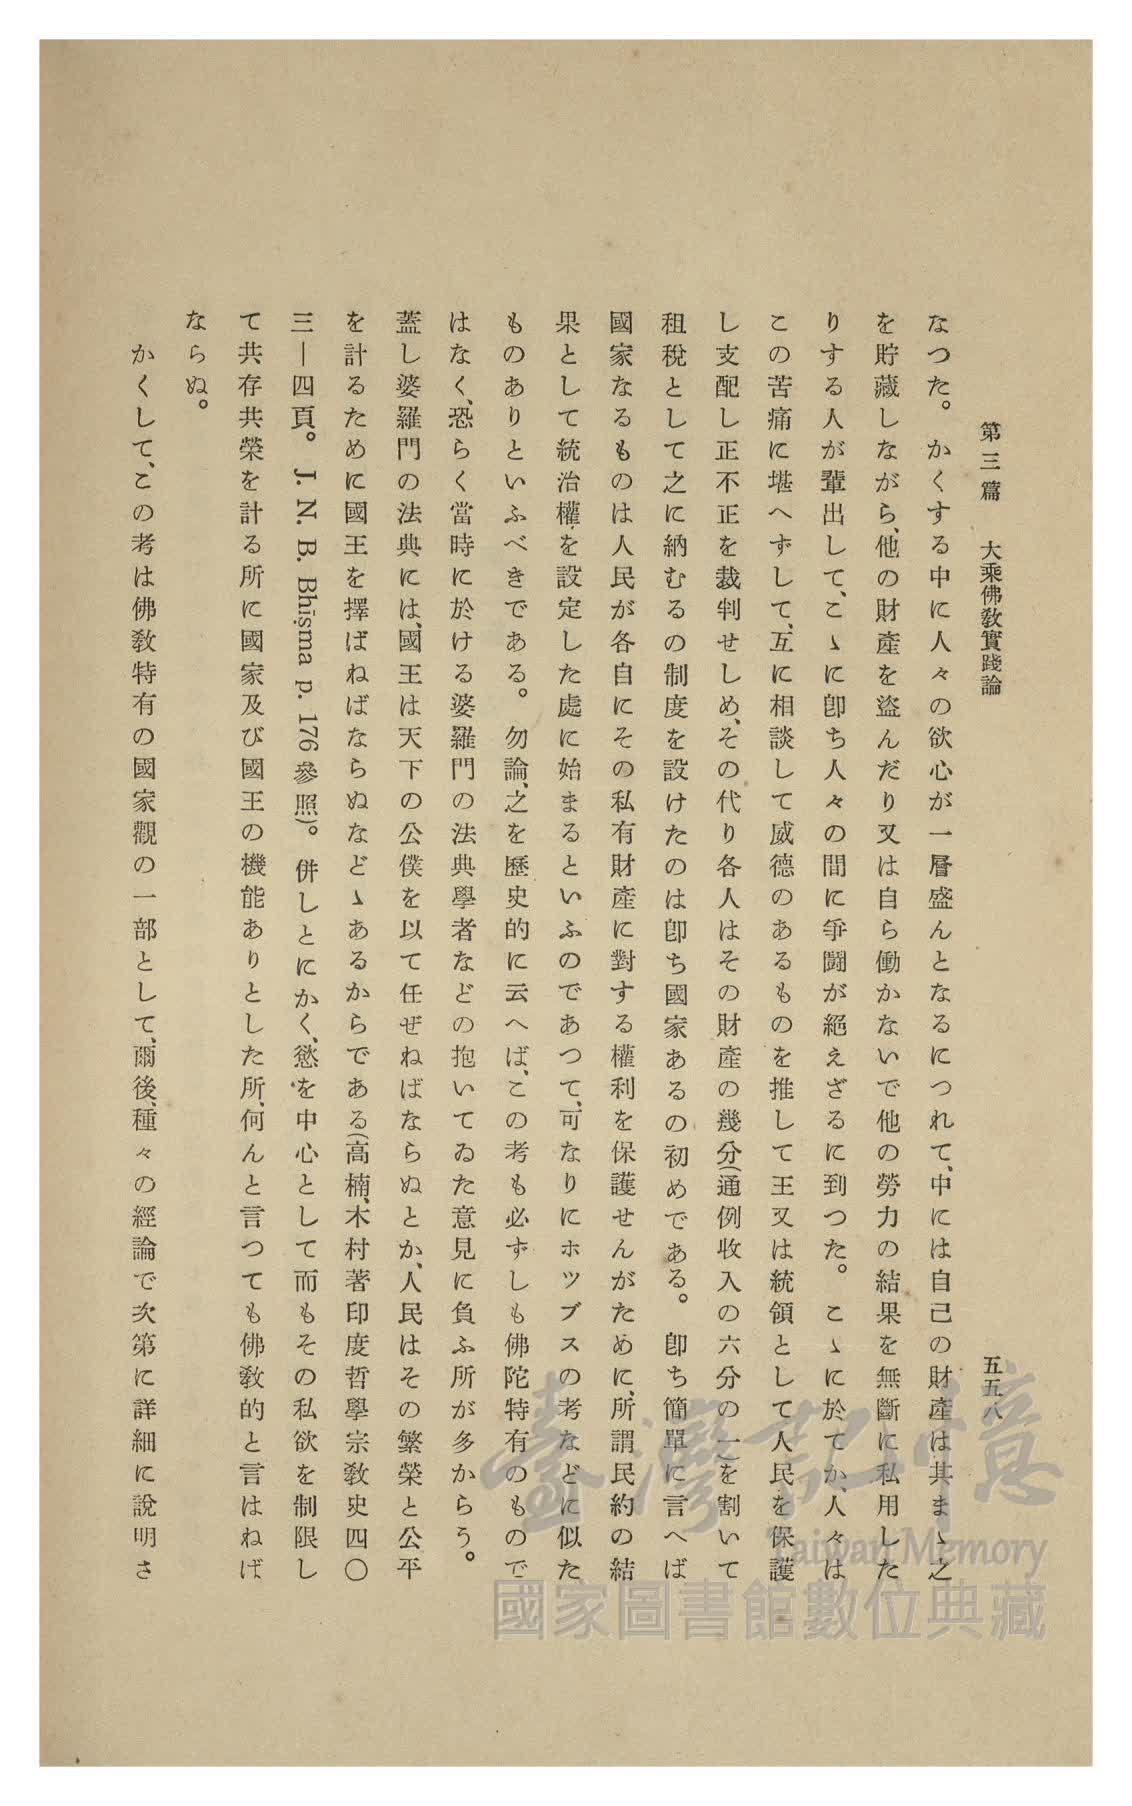 第三篇　大乘佛敎實踐論
五五八
なつた。かくする中に人々の欲心が一層盛んとなるにつれて、中には自己の財產は其まゝ之
を貯藏しながら、他の財產を盜んだり又は自ら働かないで他の勞力の結果を無斷に私用した
りする人が輩出して、こゝに卽ち人々の間に爭鬪が絕えざるに到つた。こゝに於てか、人々は
この苦痛に堪へずして、互に相談して威德のあるものを推して王又は統領として人民を保護
し支配し正不正を裁判せしめ、その代り各人はその財產の幾分(通例收入の六分の一)を割いて
租稅として之に納むるの制度を設けたのは卽ち國家あるの初めである。卽ち簡單に言へば
國家なるものは人民が各自にその私有財產に對する權利を保護せんがために、所謂民約の結
果として統治權を設定した處に始まるといふのであつて、可なりにホツブスの考などに似た
ものありといふべきである。勿論、之を歷史的に云へば、この考も必ずしも佛陀特有のもので
はなく、恐らく當時に於ける婆羅門の法典學者などの抱いてゐた意見に負ふ所が多からう。
蓋し婆羅門の法典には、國王は天下の公僕を以て任ぜねばならぬとか、人民はその繁榮と公平
を計るために國王を擇ばねばならぬなどゝあるからである(高楠、木村著印度哲學宗敎史四〇
三—四頁。J. N. B. Bhiṣma p. 176參照)。併しとにかく、慾を中心として而もその私欲を制限し
て共存共榮を計る所に國家及び國王の機能ありとした所、何んと言つても佛敎的と言はねば
ならぬ。
かくして、この考は佛敎特有の國家觀の一部として、爾後、種々の經論で次第に詳細に說明さ
臺灣記憶
Taiwan Memory
國家圖書館數位典藏